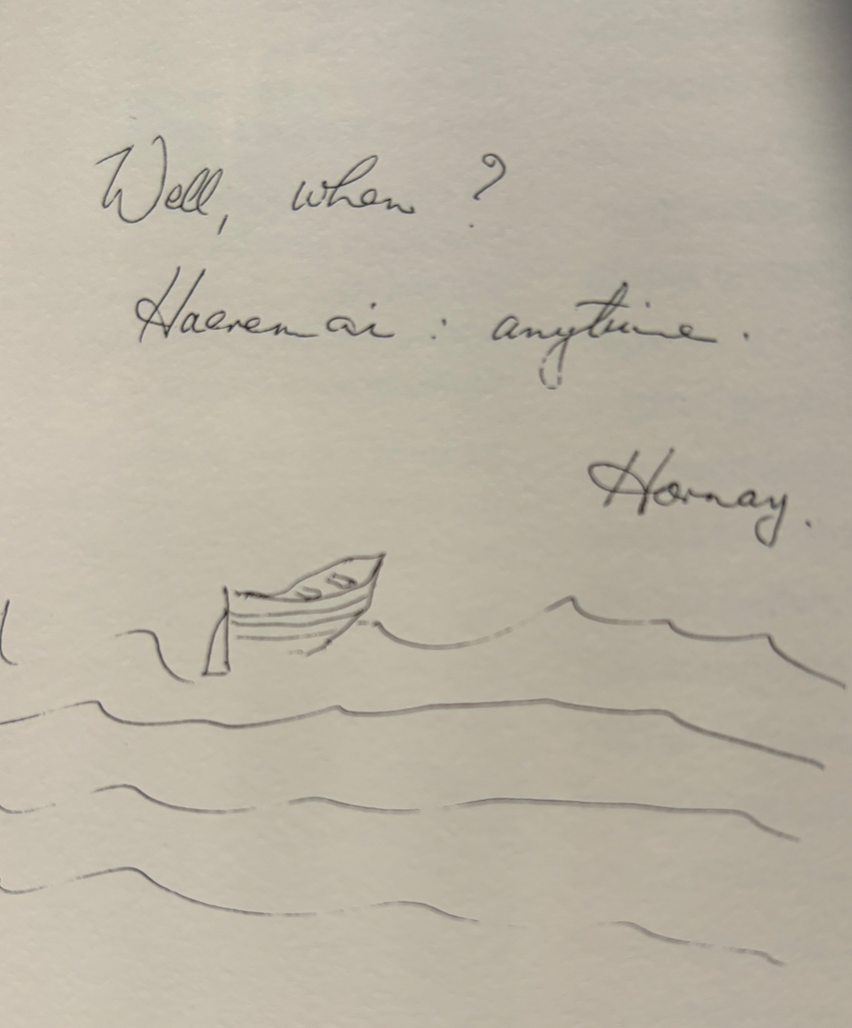 Well, when ?
Haeremai : anytime.
Hornay.